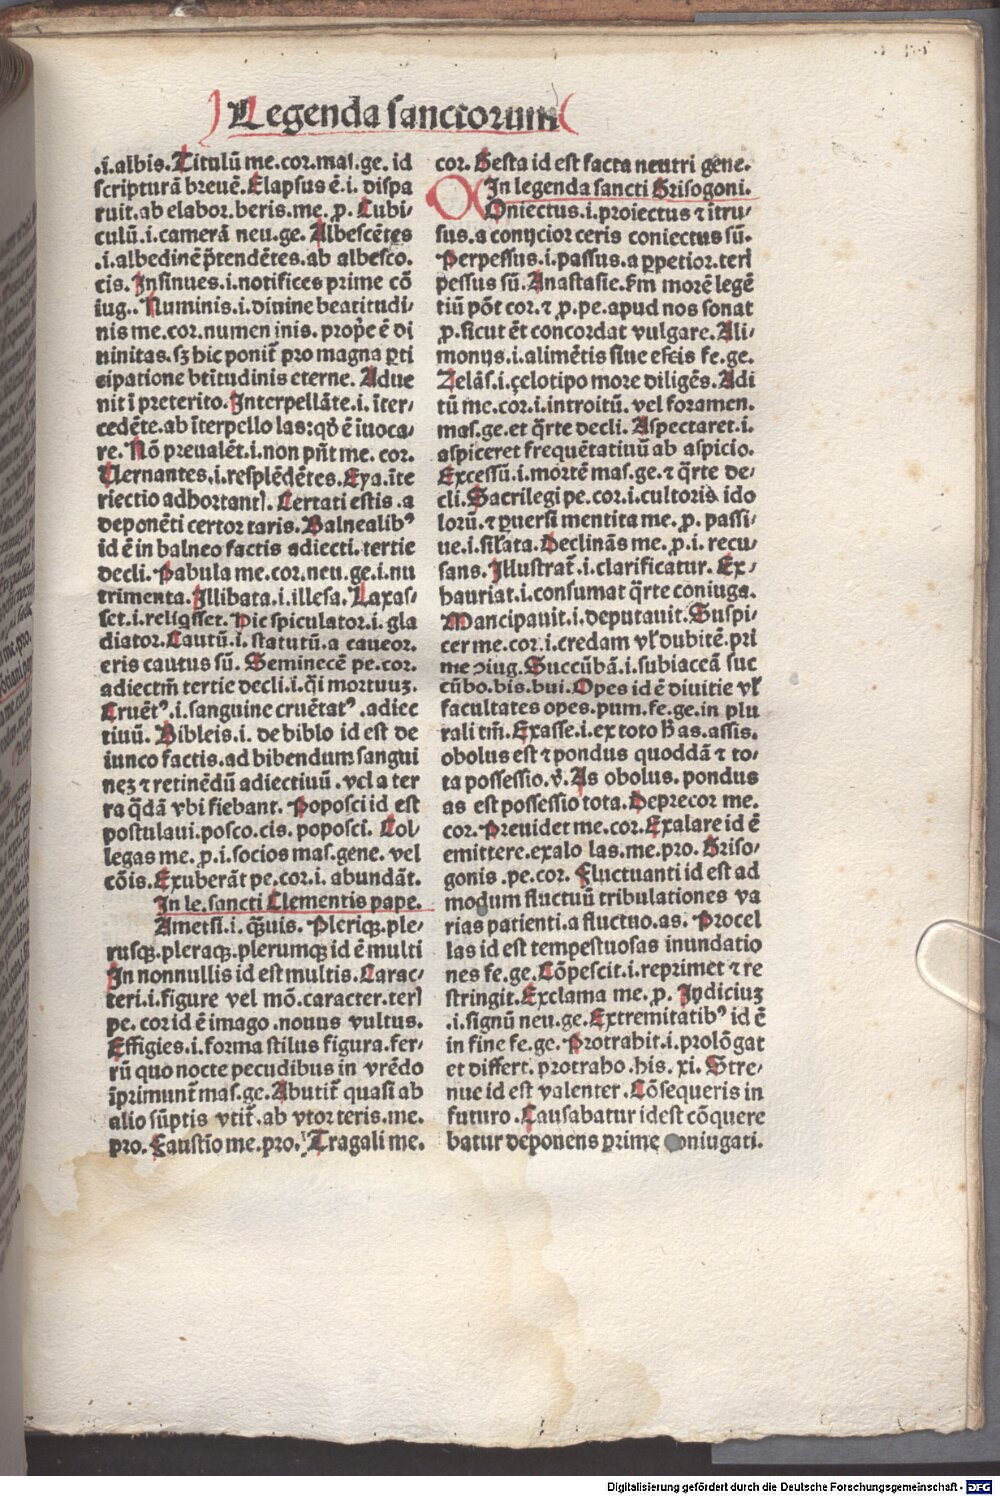 Legenda sanctorum
.i. albis. Titulū me.cor.mas.ge. id
scripturā breuē. Elapsus ē.i. dispa
ruit.ab elabor.beris.me.p. Cubi/
culū.i.camerā neu.ge. Albescētes
.i.albedinē p̄tendētes.ab albesco.
cis. Insinues.i.notifices prime cō
iug.. Numinis.i.diuine beatitudi/
nis me.cor.numen inis. prop̄e ē di
uinitas.sꝫ hic ponit̄ pro magna ꝑti
cipatione btītudinis eterne. Adue
nit ī preterito. Interpellāte.i. īter/
cedēte.ab īterpello las:qđ ē iuoca/
re. Nō preualēt.i.non pn̄t me. cor.
Uernantes.i.resplēdētes. Eya.īte
riectio adhortantꝭ. Certati estis .a
deponēti certor taris. Balnealibꝰ
id ē in balneo factis adiecti. tertie
decli. Pabula me.cor.neu.ge.i.nu
trimenta. Illibata.i.illesa. Laxas/
set.i.reliq̄sset. Hic spiculator.i. gla
diator. Cautū.i. statutū.a caueor.
eris cautus sū. Seminecē pe.cor.
adiectm̄ tertie decli.i.q̄i mortuuꝫ.
Cruētꝰ.i.sanguine cruētatꝰ.adiec
tiuū. Bibleis.i. de biblo id est de
iunco factis.ad bibendum sangui
neꝫ ⁊ retinēdū adiectiuū. vel a ter
ra q̄dā vbi fiebant. Poposci id est
postulaui.posco.cis. poposci. Col/
legas me. p.i.socios mas.gene. vel
cōis. Exuberāt pe.cor.i. abundāt.
In le.sancti Clementis pape.
Ametsi.i. q̄uis. Pleriqꝫ.ple/
rusqꝫ.pleraqꝫ.plerumqꝫ id ē multi
In nonnullis id est multis. Carac/
teri.i.figure vel mō.caracter.terꝭ
pe. cor id ē imago .nouus vultus.
Effigies.i.forma stilus figura.fer/
rū quo nocte pecudibus in vrēdo
īprimunt̄ mas.ge. Abutit̄ quasi ab
alio sūptis vtit̄.ab vtor teris.me.
pro. Faustīo me.pro. Tragali me.
cor. Gesta id est facta neutri gēne.
In legenda sancti Grisogoni.
Coniectus.i.proiectus ⁊ ītru/
sus.a conijcior ceris coniectus sū.
Perpessus.i.passus.a ꝑpetior.teri
pessus sū. Anastasie. ẜm morē legē
tiū pōt cor.⁊ p.pe.apud nos sonat
p.sicut ēt concordat vulgare. Ali/
monijs.i.alimētis siue escis fe.ge.
Zelās.i.çelotipo more diligēs. Adi
tū me.cor.i.introitū. vel foramen.
mas.ge.et q̄rte decli. Aspectaret.i.
aspiceret frequētatiuū ab aspicio.
Excessū.i.mortē mas.ge.⁊ q̄rte de/
cli. Sacrilegi pe.cor.i.cultoris ido
lorū.⁊ ꝑuersi mentita me. p. passi/
ue.i.sil̄ata. Declinās me. p.i. recu/
sans. Illustrat̄.i.clarificatur. Ex/
hauriat.i.consumat q̄rte coniuga.
Mancipauit.i.deputauit. Suspi/
cer me.cor.i.credam vl̄ dubitē.pri
me ꝯiug. Succūbā.i.subiaceā suc
cūbo.bis.bui. Opes id ē diuitie vl̄
facultates opes.pum.fe.ge.in plu
rali tm̄. Exasse.i.ex toto ħ as.assis.
obolus est ⁊ pondus quoddā ⁊ to/
ta possessio.v̄. As obolus. pondus
as est possessio tota. Deprecor me.
cor. Preuidet me.cor. Exalare id ē
emittere.exalo las.me.pro. Griso/
gonis .pe.cor. Fluctuanti id est ad
modum fluctuū tribulationes va
rias patienti.a fluctuo.as. Procel
las id est tempestuosas inundatio
nes fe.ge. Cōpescit.i.reprimet ⁊ re
stringit. Exclama me. p. Iudiciuꝫ
.i.signū neu.ge. Extremitatibꝰ id ē
in fine fe.ge. Protrahit.i.prolōgat
et differt. protraho .his. xi. Stre/
nue id est valenter. Cōsequeris in
futuro. Causabatur id est cōquere
batur deponens prime coniugati.
Digitalisierung gefördert durch die Deutsche Forschungsgemeinschaft - DFG